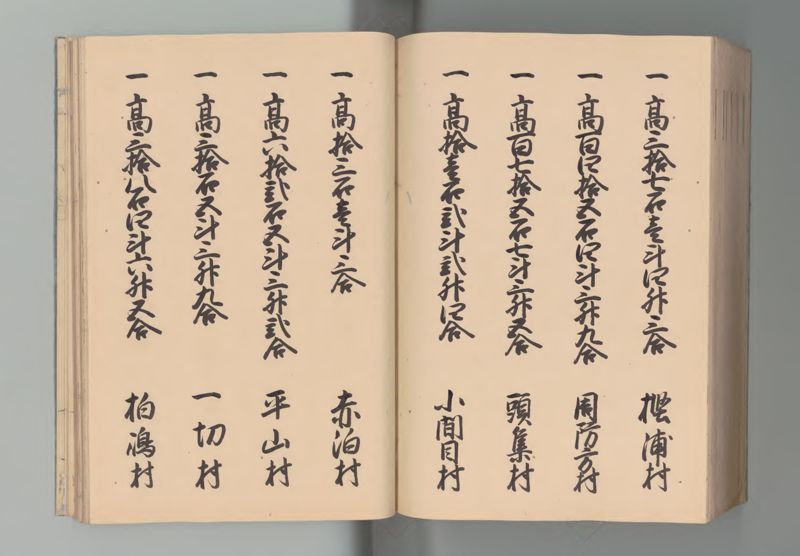 一 高三拾七石壱斗四升三合 樫浦村
一 高百四拾五石四斗三升九合 周防方村
一 高百七拾五石七斗三升五合 頭集村
一 高拾壱石弐斗弐升四合 小間目村
一 高拾三石壱斗三合 赤泊村
一 高六拾弐石五斗三升弐合 平山村
一 高三拾石五斗三升九合 一切村
一 高三拾八石四斗六升五合 柏嶋村